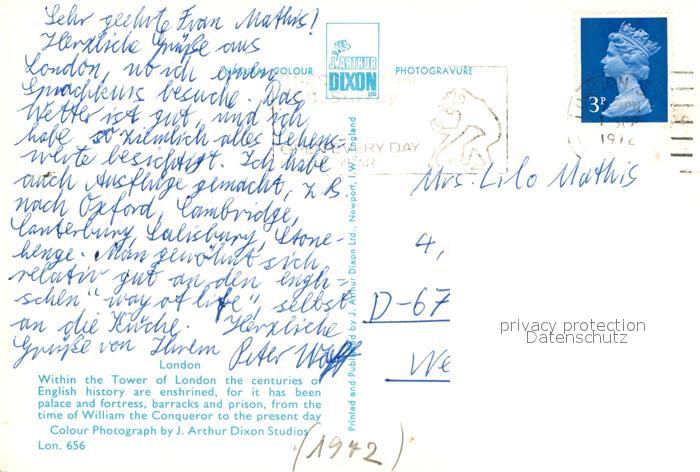 Sehr geehrte Frau Mathis!
Herzliche Grüße aus
London, wo ich einen
Sprachkurs besuche. Das
Wetter ist gut, und ich
habe so ziemlich alles Sehens-
werte besichtigt. Ich habe
auch Ausflüge gemacht, z.B.
nach Oxford, Cambridge,
Canterbury, Salisbury, Stone-
henge. Man gewöhnt sich
relativ gut an den engli-
schen "way of life", selbst
an die Küche. Herzliche
Grüße von Ihrem Peter Wolff
COLOUR
J. ARTHUR
DIXON
GB
PHOTOGRAVURE
OPEN EVERY DAY
YEAR
3P
1972
Mrs. Lilo Mathis
4,
D-67
We
privacy protection
Datenschutz
Printed and Published by J. Arthur Dixon Ltd., Newport, I.W. England
London
Within the Tower of London the centuries of
English history are enshrined, for it has been
palace and fortress, barracks and prison, from the
time of William the Conqueror to the present day
Colour Photograph by J. Arthur Dixon Studios
Lon. 656
(1972)